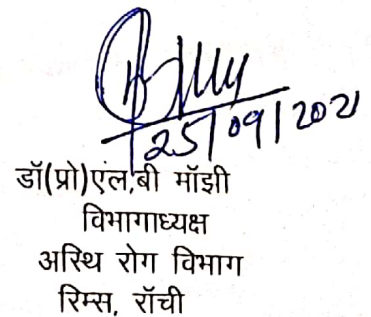 25/09/2021
डॉ(प्रो)एल,बी मॉझी
विभागाध्यक्ष
अस्थि रोग विभाग
रिम्स, रॉची